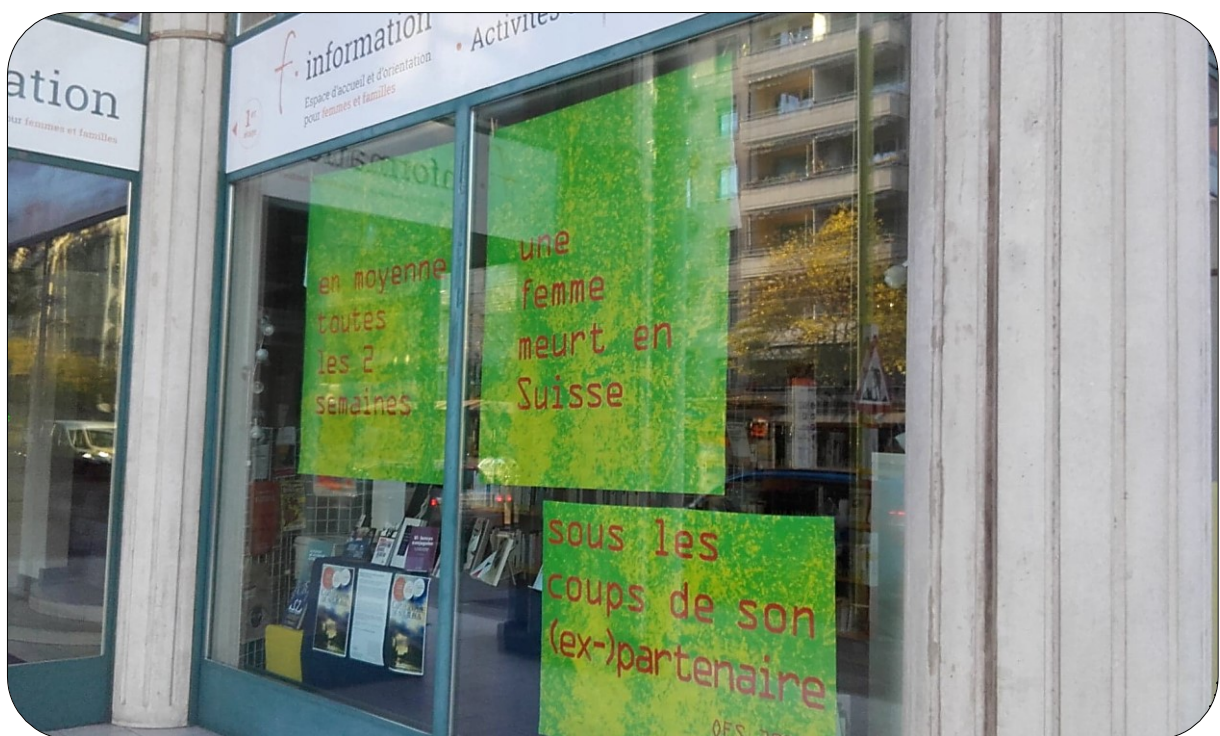 ation
pour femmes et familles
f-information
Espace d'accueil et d'orientation
pour femmes et familles
1er
étage
• Activités
en moyenne
toutes
les 2
semaines
une
femme
meurt en
Suisse
sous les
coups de son
(ex-)partenaire
OFS